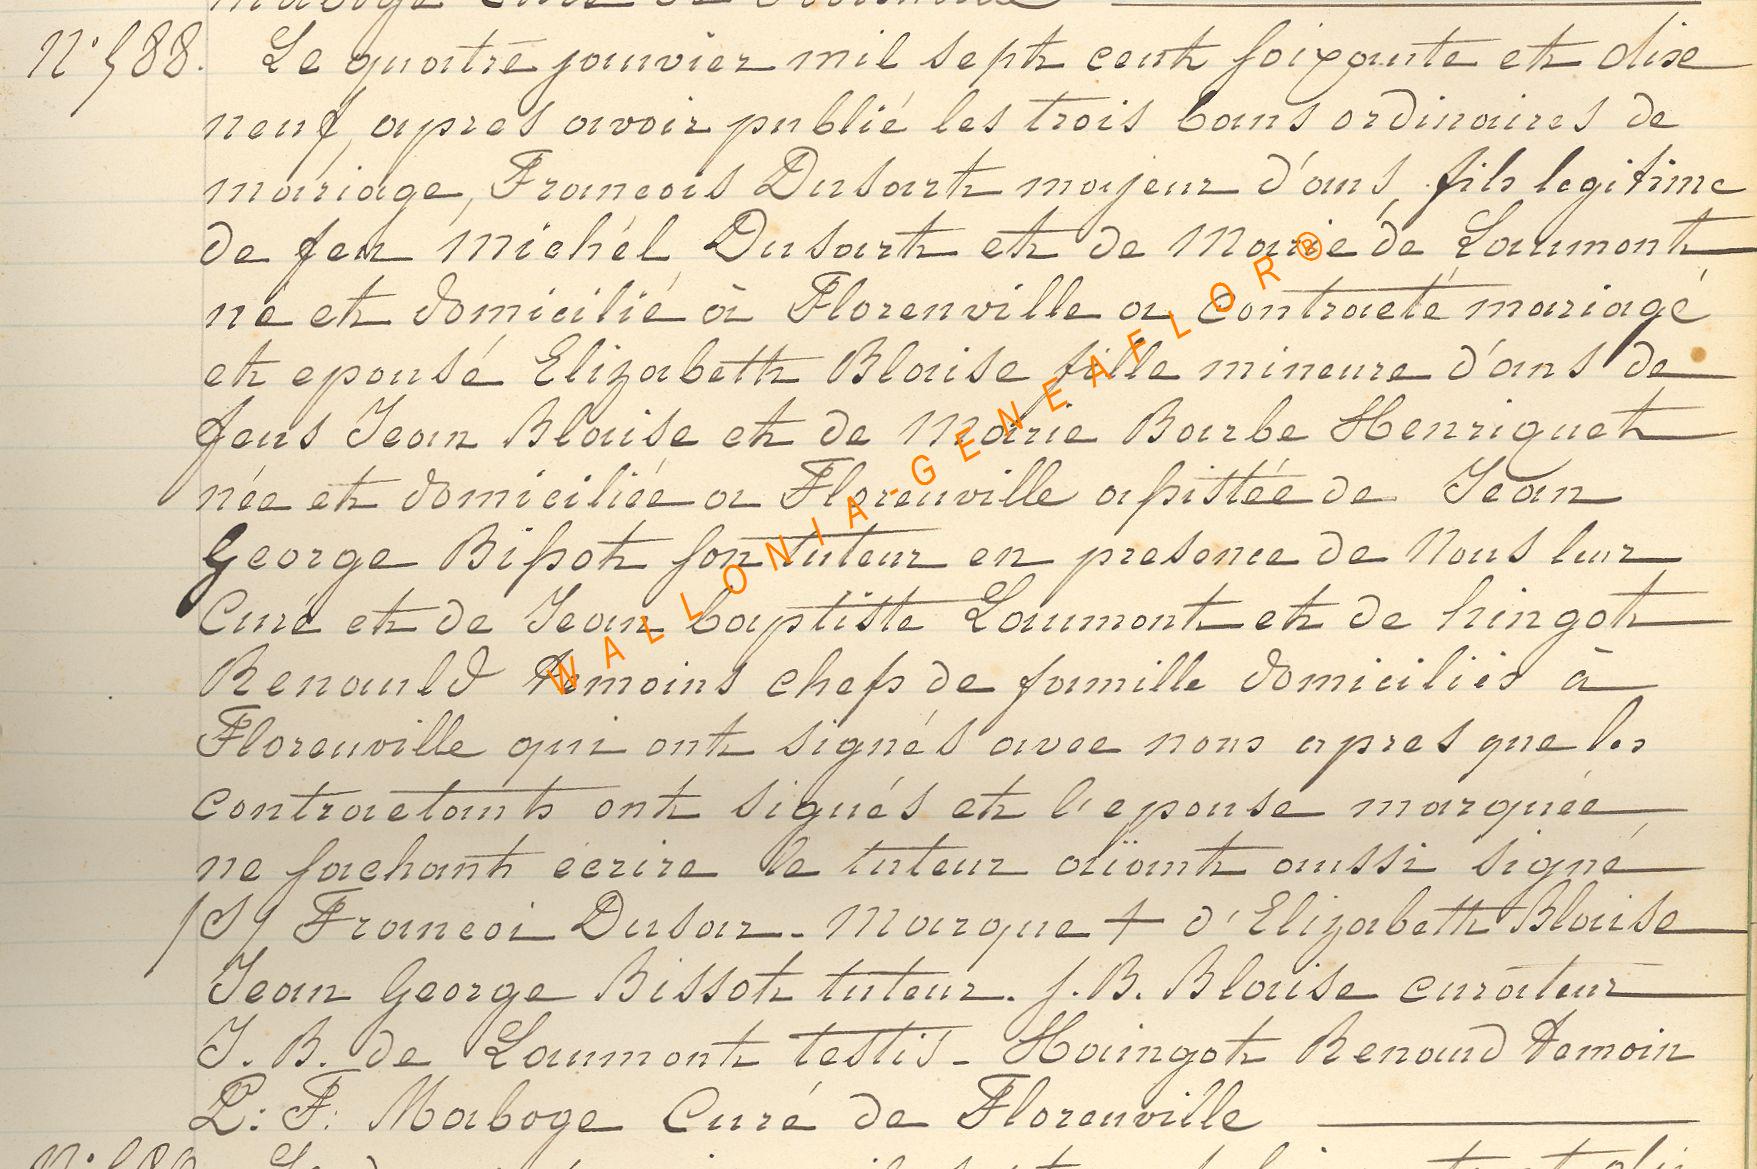 maboge Curé de Florenville
N° 588. Le quatre janvier mil sept cent soixante et dise
neuf, apres avoir publié les trois bans ordinaires de
mariage, Francois Dusart majeur d'ans, fils legitime
de feu Michél Dusart et de Marie de Laumont
né et domicilié à Florenville a contracté mariagé
et epousé Elizabeth Blaise fille mineure d'ans de
feus Jean Blaise et de Marie Barbe Henriquet
née et domiciliée a Florenville assistée de Jean
George Bissot son tuteur en presence de Nous leur
Curé et de Jean baptiste Laumont et de hingot
Renauld temoins chefs de famille domiciliés à
Florenville qui ont signés avec nous apres que les
contractants ont signés et l'epouse marquée
ne sachant écrire le tuteur aïant aussi signé
/S/ Francoi Dusar - Marque + d'Elizabeth Blaise
Jean George Bissot tuteur. J. B. Blaise curateur
J. B. de Laumont testis - Haingot Renaud temoin
P: F: Maboge Curé de Florenville
WALLONIA-GENEAFLOR®
N° 589.